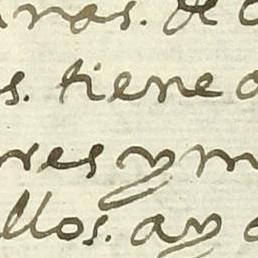 uras. de
s. tiene
res y m
llos. ay